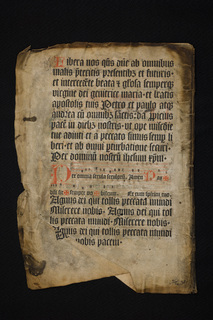 Libera nos q̄s dn̄e ab omnibus
malis preteritis presentibꝫ et futuris.
et intercedēte beata et gl̄osa semperqꝫ
virgine dei genitrice maria et beatis
apostolis tuis Petro et paulo atqꝫ
andrea cū omnibꝫ sāctis. da ꝓpicius
pacē in diebꝫ nostris. ut ope miẜcdie
tue adiuti et a peccato simus semp li
beri et ab omni pturbatione securi.
Per dominū nostrū
Per omnia secula seculoꝝ. Amen. Pax
Et cum spiritu tuo.
Agnus dei qui tollis peccata mundi
Miserere nobis. Agnus dei qui tol
lis peccata mundi. Miserere nobis.
Agnus dei qui tollis peccata mundi
nobis pacem.